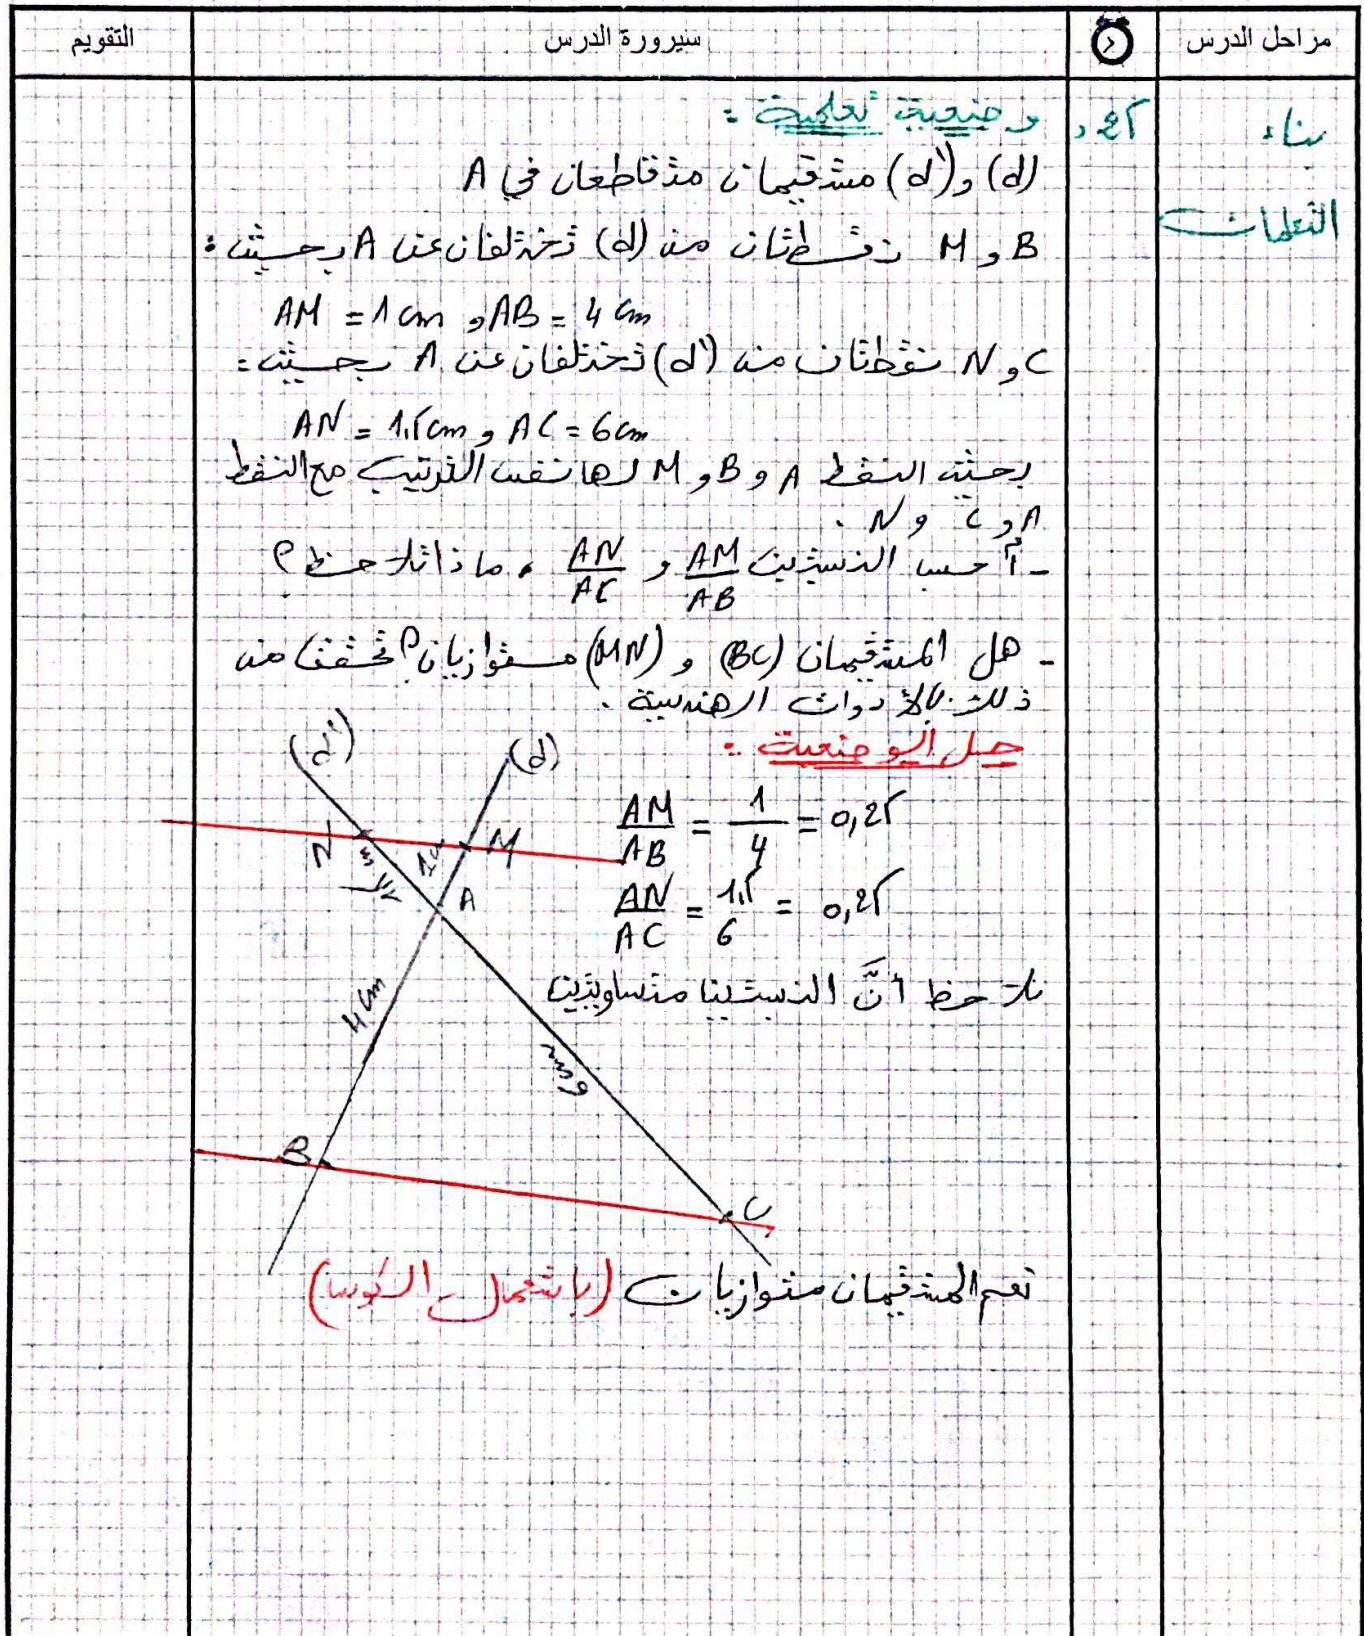 مراحل الدرس
سيرورة الدرس
التقويم
بناء
التعلمات
25 د
وضعية تعلمية :
(d) و (d') مستقيمان متقاطعان في A
B و M نقطتان من (d) تختلفان عن A بحيث :
AM = 1 cm و AB = 4 cm
C و N نقطتان من (d') تختلفان عن A بحيث :
AN = 1,5 cm و AC = 6 cm
بحيث النقط A و B و M لها نفس الترتيب مع النقط
A و C و N .
- أحسب النسبتين AM/AB و AN/AC ، ماذا تلاحظ ؟
- هل المستقيمان (BC) و (MN) متوازيان ؟ تحقق من
ذلك بالأدوات الهندسية .
حل الوضعية :
(d')
(d)
AM/AB = 1/4 = 0,25
N
1 cm
M
A
AN/AC = 1,5/6 = 0,25
نلاحظ أنَّ النسبتين متساويتين
4 cm
6 cm
B
C
نعم المستقيمان متوازيان (باستعمال الكوس)